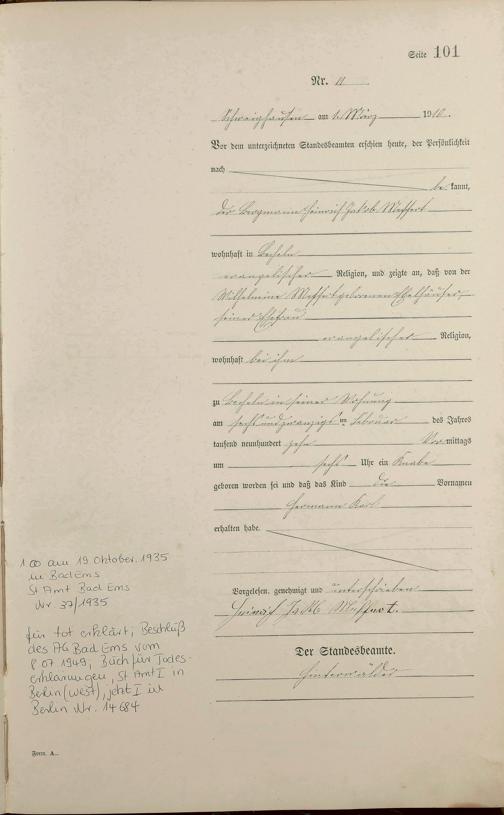 Seite 101
Nr. 11
Schweighausen am 1. März 1910.
Vor dem unterzeichneten Standesbeamten erschien heute, der Persönlichkeit
nach
be kannt,
der Bergmann Heinrich Jakob Meffert
wohnhaft in Becheln
evangelischer Religion, und zeigte an, daß von der
Wilhelmine Meffert geborenen
seiner Ehefrau
evangelischer Religion,
wohnhaft bei ihm
zu Becheln in seiner Wohnung
am sechsundzwanzigsten Februar des Jahres
tausend neunhundert zehn Vor mittags
um sechs Uhr ein Knabe
geboren worden sei und daß das Kind die Vornamen
Hermann Karl
erhalten habe.
Vorgelesen, genehmigt und unterschrieben
Heinrich Jakob Meffert.
Der Standesbeamte.
Hinterwälder
1 ∞ am 19 Oktober 1935
in Bad Ems
St Amt Bad Ems
Nr 37/1935
für tot erklärt; Beschluß
des AG Bad Ems vom
8 07 1949, Buch für Todes-
erklärungen, St Amt I in
Berlin (West), jetzt I in
Berlin Nr. 14684
Form. A..